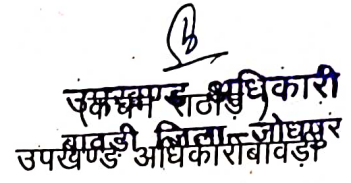 उपखण्ड अधिकारी
(कंचन राठौड़)
बावड़ी जिला-जोधपुर
उपखण्ड अधिकारीबावड़ी